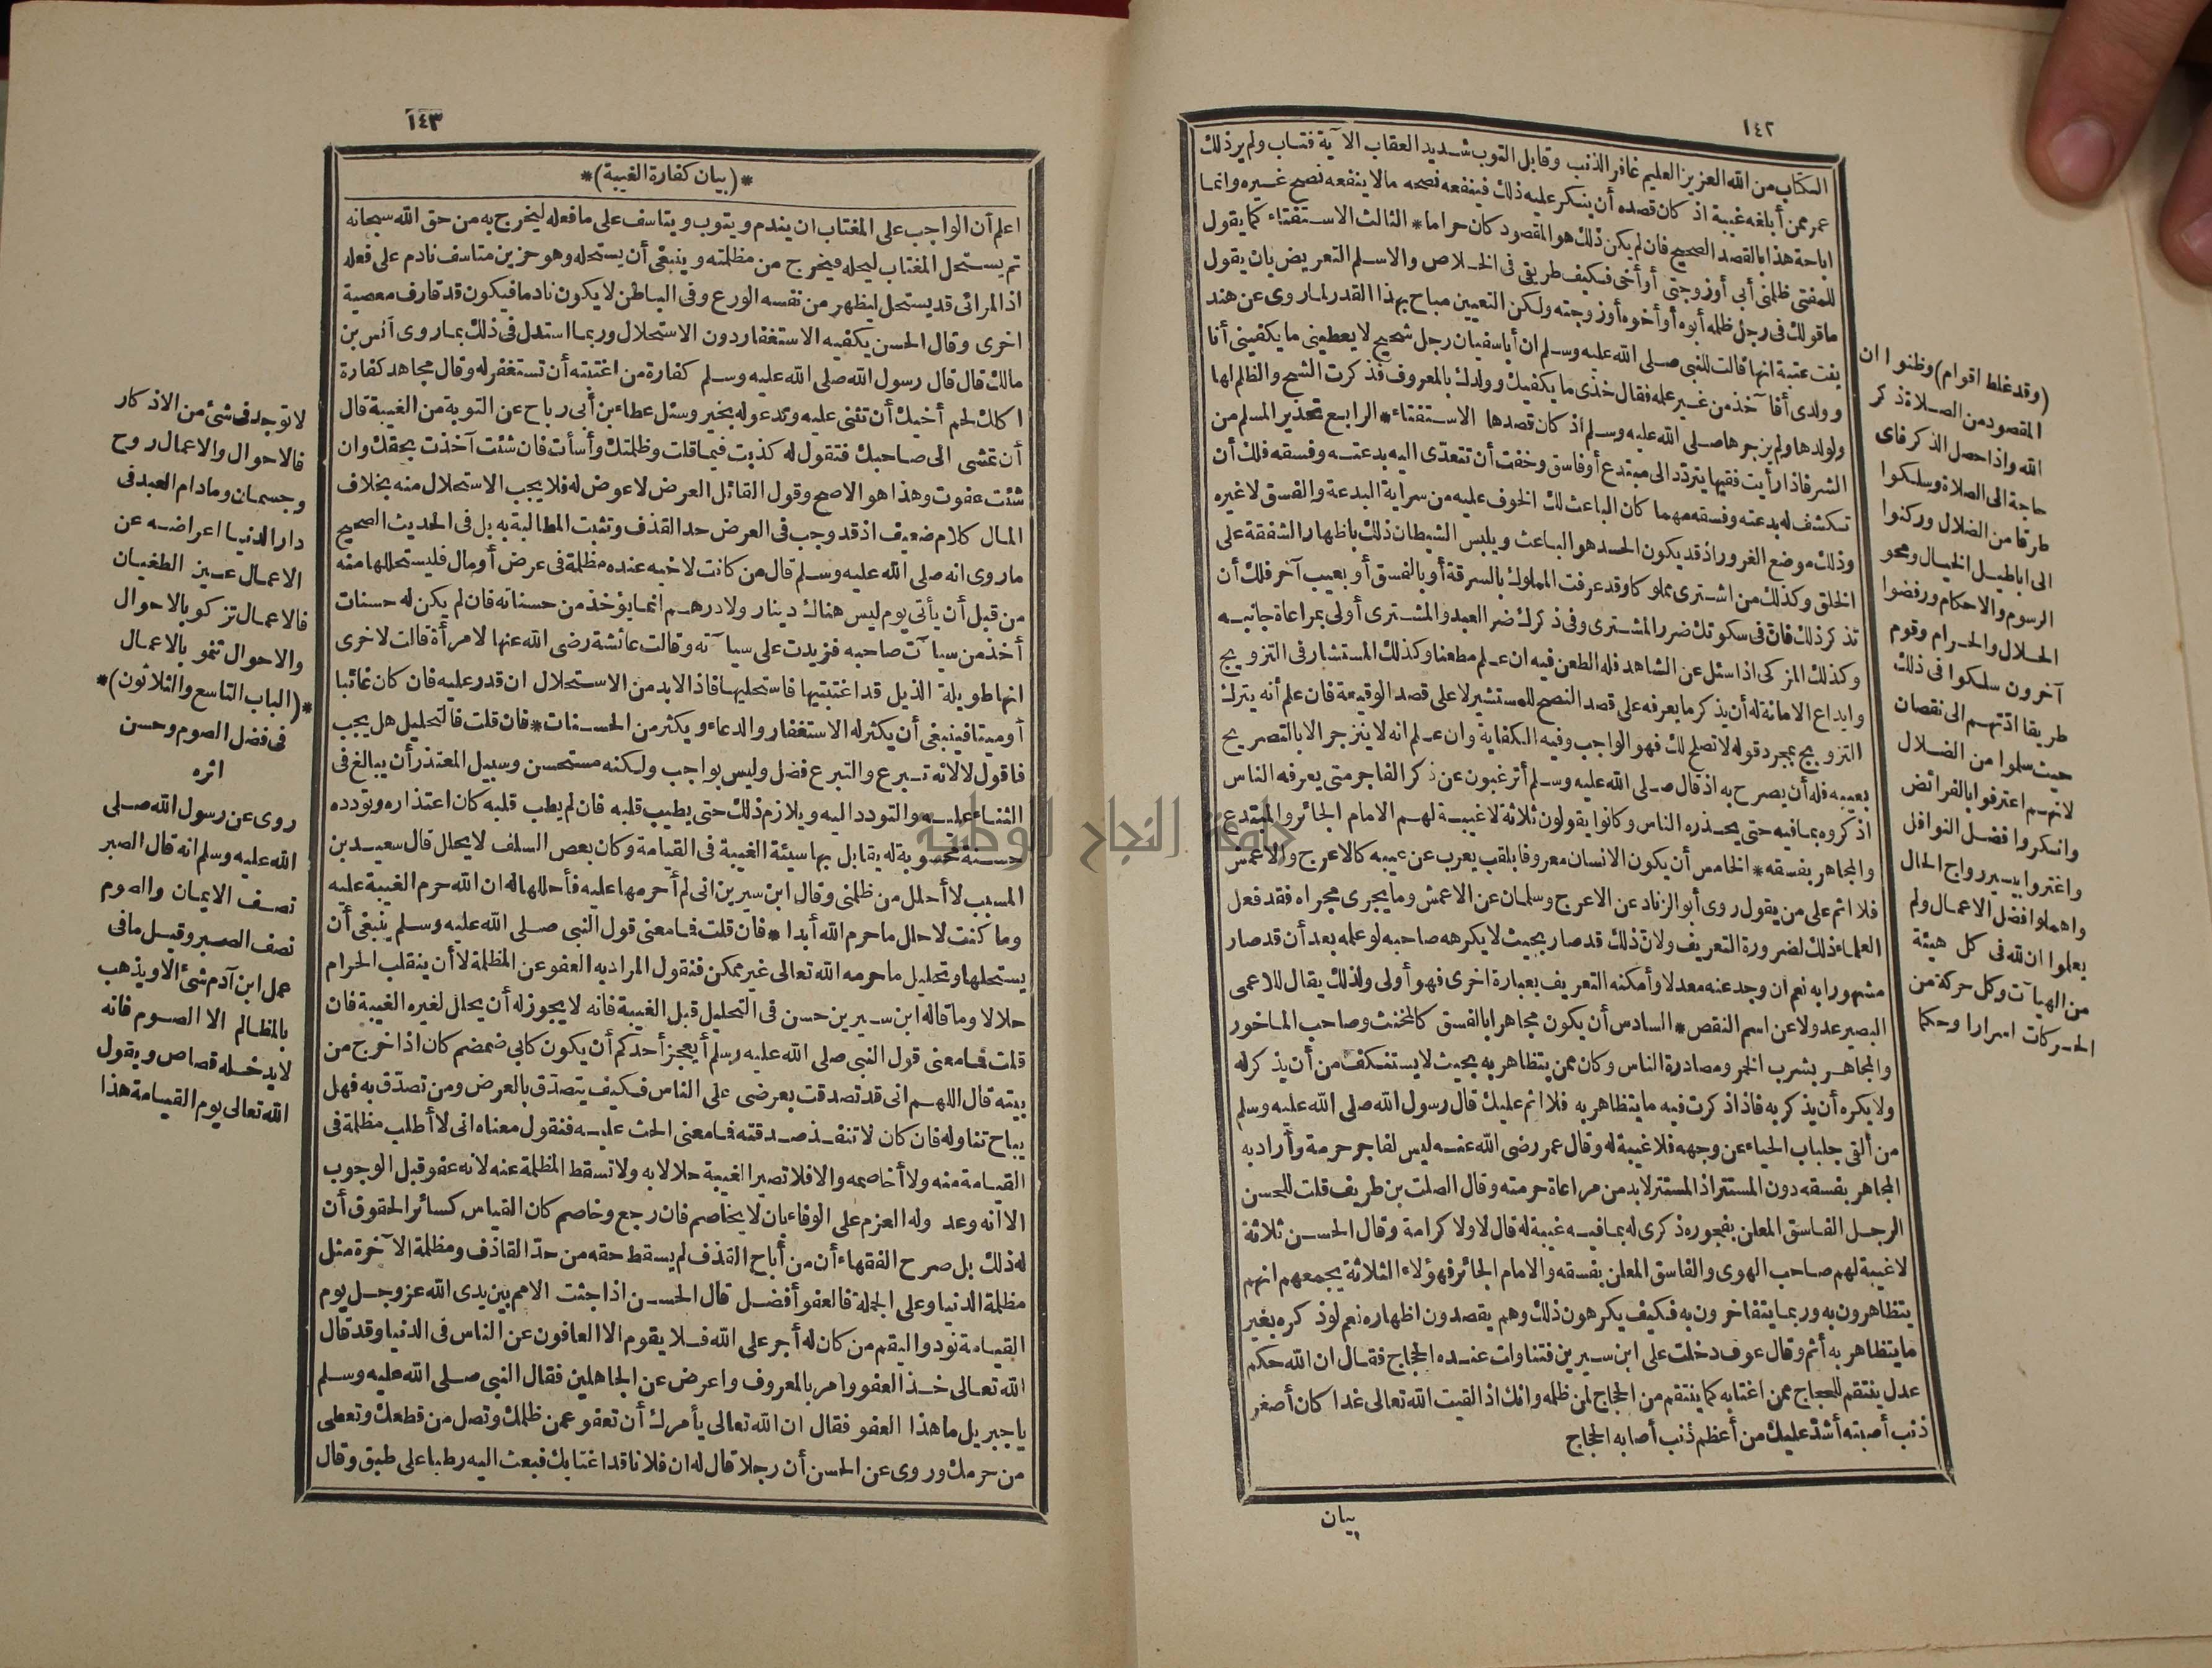 ١٤٢
الكتاب من الله العزيز العليم غافر الذنب وقابل التوب شديد العقاب الآية فتاب ولم ير ذلك
عمر ممن أبلغه غيبة اذ كان قصده أن ينكر عليه ذلك فينفعه نصحه مالا ينفعه نصح غيره وانما
اباحة هذا بالقصد الصحيح فان لم يكن ذلك هو المقصود كان حراما * الثالث الاستفتاء كما يقول
للمفتى ظلمنى أبى أوزوجتى أوأخى فكيف طريقى فى الخلاص والاسلم التعريض بان يقول
ماقولك فى رجل ظلمه أبوه أوأخوه أوزوجته ولكن التعيين مباح بهذا القدر لما روى عن هند
بنت عتبة انها قالت للنبى صلى الله عليه وسلم ان أبا سفيان رجل شحيح لا يعطينى ما يكفينى أنا
وولدى أفآخذ من غير علمه فقال خذى ما يكفيك وولدك بالمعروف فذكرت الشح والظلم لها
ولولدها ولم يزجرها صلى الله عليه وسلم اذ كان قصدها الاستفتاء * الرابع تحذير المسلم من
الشر فاذا رأيت فقيها يتردد الى مبتدع أو فاسق وخفت أن تتعدى اليه بدعته وفسقه فلك أن
تكشف له بدعته وفسقه مهما كان الباعث لك الخوف عليه من سراية البدعة والفسق لا غيره
وذلك موضع الغرور اذ قد يكون الحسد هو الباعث ويلبس الشيطان ذلك باظهار الشفقة على
الخلق وكذلك من اشترى مملوكا وقد عرفت المملوك بالسرقة أو بالفسق أو بعيب آخر فلك أن
تذكر ذلك فان فى سكوتك ضرر المشترى وفى ذكرك ضر العبد والمشترى أولى بمراعاة جانبه
وكذلك المزكى اذا سئل عن الشاهد فله الطعن فيه ان علم مطعنا وكذلك المستشار فى التزويج
وايداع الامانة له أن يذكر ما يعرفه على قصد النصح للمستشير لا على قصد الوقيعة فان علم أنه يترك
التزويج بمجرد قوله لا تصلح لك فهو الواجب وفيه الكفاية وان علم انه لا ينزجر الا بالتصريح
بعيبه فله أن يصرح به اذ قال صلى الله عليه وسلم أترغبون عن ذكر الفاجر متى يعرفه الناس
اذكروه بما فيه حتى يحذره الناس وكانوا يقولون ثلاثة لا غيبة لهم الامام الجائر والمبتدع
والمجاهر بفسقه * الخامس أن يكون الانسان معروفا بلقب يعرب عن عيبه كالاعرج والاعمش
فلا اثم على من يقول روى أبو الزناد عن الاعرج وسلمان عن الاعمش وما يجرى مجراه فقد فعل
العلماء ذلك لضرورة التعريف ولان ذلك قد صار بحيث لا يكرهه صاحبه لو علمه بعد أن قد صار
مشهورا به نعم ان وجد عنه معدلا وأمكنه التعريف بعبارة اخرى فهو أولى ولذلك يقال للاعمى
البصير عدولا عن اسم النقص * السادس أن يكون مجاهرا بالفسق كالمخنث وصاحب الماخور
والمجاهر بشرب الخمر ومصادرة الناس وكان ممن يتظاهر به بحيث لا يستنكف من أن يذكر له
ولا يكره أن يذكر به فاذا ذكرت فيه ما يتظاهر به فلا اثم عليك قال رسول الله صلى الله عليه وسلم
من ألقى جلباب الحياء عن وجهه فلا غيبة له وقال عمر رضى الله عنه ليس لفاجر حرمة وأراد به
المجاهر بفسقه دون المستتر اذ المستتر لابد من مراعاة حرمته وقال الصلت بن طريف قلت للحسن
الرجل الفاسق المعلن بفجوره ذكرى له بما فيه غيبة له قال لا ولا كرامة وقال الحسن ثلاثة
لا غيبة لهم صاحب الهوى والفاسق المعلن بفسقه والامام الجائر فهؤلاء الثلاثة يجمعهم انهم
يتظاهرون به وربما يتفاخرون به فكيف يكرهون ذلك وهم يقصدون اظهاره نعم لو ذكره بغير
ما يتظاهر به أثم وقال عوف دخلت على ابن سيرين فتناولت عنده الحجاج فقال ان الله حكم
عدل ينتقم للحجاج ممن اغتابه كما ينتقم من الحجاج لمن ظلمه وانك اذا لقيت الله تعالى غدا كان أصغر
ذنب أصبته أشد عليك من أعظم ذنب أصابه الحجاج
بيان
(وقد غلط اقوام) وظنوا ان
المقصود من الصلاة ذكر
الله واذا حصل الذكر فأى
حاجة الى الصلاة وسلكوا
طرقا من الضلال وركنوا
الى اباطيل الخيال ومحو
الرسوم والاحكام ورفضوا
الحلال والحرام وقوم
آخرون سلكوا فى ذلك
طريقا ادتهم الى نقصان
حيث سلموا من الضلال
لانهم اعترفوا بالفرائض
وانكروا فضل النوافل
واغتروا بيسير رواج الحال
واهملوا فضل الاعمال ولم
يعلموا ان لله فى كل هيئة
من الهيآت وكل حركة من
الحركات اسرارا وحكما
١٤٣
*(بيان كفارة الغيبة)*
اعلم أن الواجب على المغتاب ان يندم ويتوب ويتاسف على ما فعله ليخرج به من حق الله سبحانه
ثم يستحل المغتاب ليحله فيخرج من مظلمته وينبغى أن يستحله وهو حزين متاسف نادم على فعله
اذ المرائى قد يستحل ليظهر من نفسه الورع وفى الباطن لا يكون نادما فيكون قد قارف معصية
اخرى وقال الحسن يكفيه الاستغفار دون الاستحلال وربما استدل فى ذلك بما روى أنس بن
مالك قال قال رسول الله صلى الله عليه وسلم كفارة من اغتبته أن تستغفر له وقال مجاهد كفارة
اكلك لحم أخيك أن تثنى عليه وتدعو له بخير وسئل عطاء بن أبى رباح عن التوبة من الغيبة قال
أن تمشى الى صاحبك فتقول له كذبت فيما قلت وظلمتك وأسأت فان شئت آخذت بحقك وان
شئت عفوت وهذا هو الاصح وقول القائل العرض لا عوض له فلا يجب الاستحلال منه بخلاف
المال كلام ضعيف اذ قد وجب فى العرض حد القذف وتثبت المطالبة به بل فى الحديث الصحيح
ما روى انه صلى الله عليه وسلم قال من كانت لاخيه عنده مظلمة فى عرض أو مال فليستحللها منه
من قبل أن يأتى يوم ليس هناك دينار ولا درهم انما يؤخذ من حسناته فان لم يكن له حسنات
أخذ من سيآت صاحبه فزيدت على سيآته وقالت عائشة رضى الله عنها لامرأة قالت لاخرى
انها طويلة الذيل قد اغتبتيها فاستحليها فاذا لابد من الاستحلال ان قدر عليه فان كان غائبا
أوميتا فينبغى أن يكثر له الاستغفار والدعاء ويكثر من الحسنات * فان قلت فالتحليل هل يجب
فاقول لا لانه تبرع والتبرع فضل وليس بواجب ولكنه مستحسن وسبيل المعتذر أن يبالغ فى
الثناء عليه والتودد اليه ويلازم ذلك حتى يطيب قلبه فان لم يطب قلبه كان اعتذاره وتودده
حسنة محسوبة له يقابل بها سيئة الغيبة فى القيامة وكان بعض السلف لا يحلل قال سعيد بن
المسيب لا أحلل من ظلمنى وقال ابن سيرين انى لم أحرمها عليه فأحللها له ان الله حرم الغيبة عليه
وما كنت لاحلل ما حرم الله أبدا * فان قلت فما معنى قول النبى صلى الله عليه وسلم ينبغى أن
يستحلها وتحليل ما حرمه الله تعالى غير ممكن فنقول المراد به العفو عن المظلمة لا أن ينقلب الحرام
حلالا وما قاله ابن سيرين حسن فى التحليل قبل الغيبة فانه لا يجوز له أن يحلل لغيره الغيبة فان
قلت فما معنى قول النبى صلى الله عليه وسلم أيعجز أحدكم أن يكون كأبى ضمضم كان اذا خرج من
بيته قال اللهم انى قد تصدقت بعرضى على الناس فكيف يتصدق بالعرض ومن تصدق به فهل
يباح تناوله فان كان لا تنفذ صدقته فما معنى الحث عليه فنقول معناه انى لا أطلب مظلمة فى
القيامة منه ولا أخاصمه والا فلا تصير الغيبة حلالا به ولا تسقط المظلمة عنه لانه عفو قبل الوجوب
الا انه وعد وله العزم على الوفاء بان لا يخاصم فان رجع وخاصم كان القياس كسائر الحقوق أن
له ذلك بل صرح الفقهاء أن من أباح القذف لم يسقط حقه من حد القاذف ومظلمة الآخرة مثل
مظلمة الدنيا وعلى الجملة فالعفو أفضل قال الحسن اذا جثت الامم بين يدى الله عز وجل يوم
القيامة نودوا ليقم من كان له أجر على الله فلا يقوم الا العافون عن الناس فى الدنيا وقد قال
الله تعالى خذ العفو وامر بالمعروف واعرض عن الجاهلين فقال النبى صلى الله عليه وسلم
يا جبريل ما هذا العفو فقال ان الله تعالى يأمرك أن تعفو عمن ظلمك وتصل من قطعك وتعطى
من حرمك وروى عن الحسن أن رجلا قال له ان فلانا قد اغتابك فبعث اليه رطبا على طبق وقال
لا توجد فى شئ من الاذكار
فالاحوال والاعمال روح
وجسمان ومادام العبد فى
دار الدنيا اعراضه عن
الاعمال عين الطغيان
فالاعمال تزكو بالاحوال
والاحوال تنمو بالاعمال
*(الباب التاسع والثلاثون)*
فى فضل الصوم وحسن
اثره
روى عن رسول الله صلى
الله عليه وسلم انه قال الصبر
نصف الايمان والصوم
نصف الصبر وقيل ما فى
عمل ابن آدم شئ الا ويذهب
بالمظالم الا الصوم فانه
لا يدخله قصاص ويقول
الله تعالى يوم القيامة هذا
جامعة النجاح الوطنية